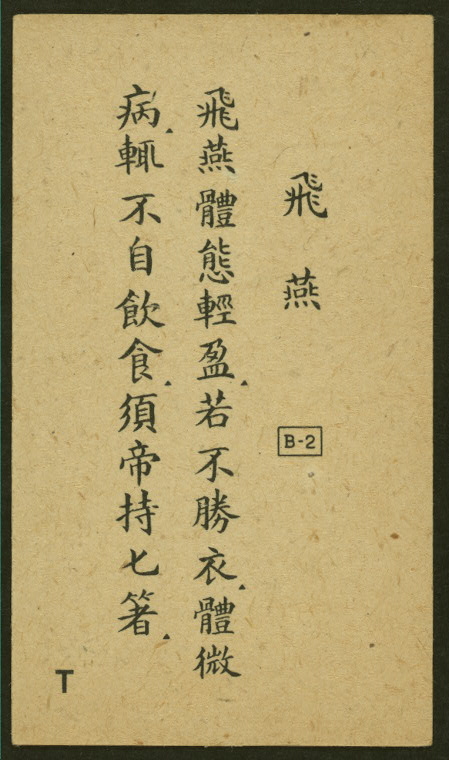 飛燕
B-2
飛燕體態輕盈▲若不勝衣▲體微
病▲輒不自飲食▲須帝持匕箸▲
T